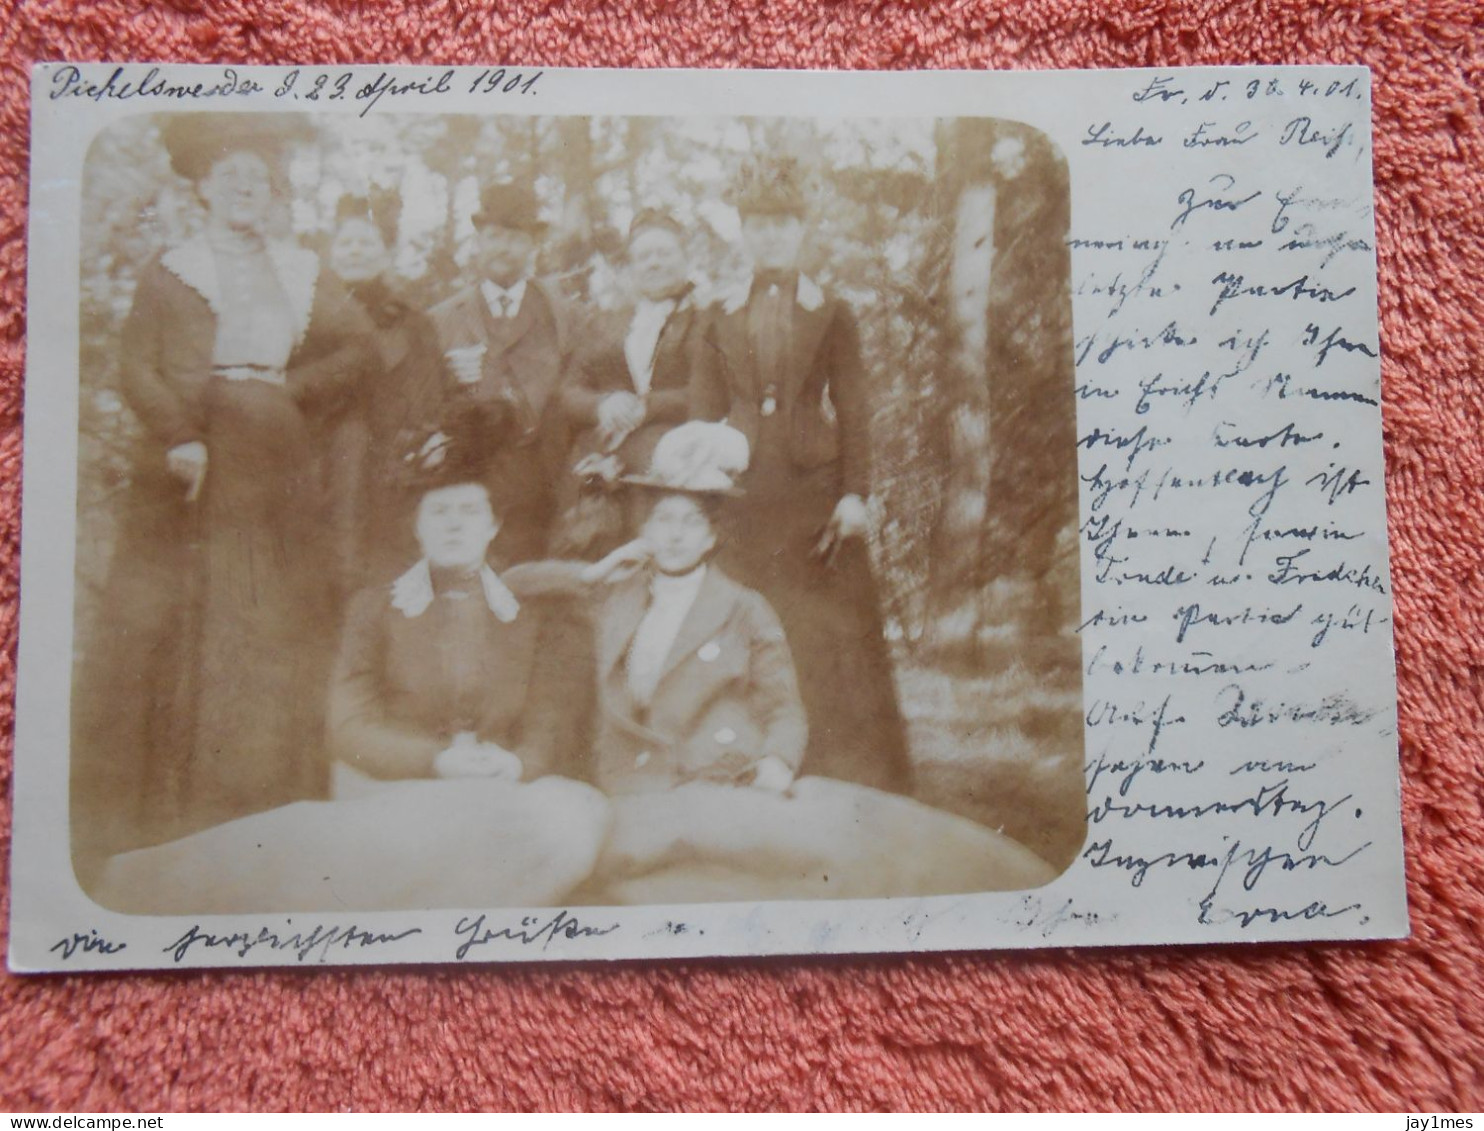 Pichelswerder d. 23. April 1901.
Fr. d. 30. 4. 01.
Liebe Frau Reiß,
Zur
nerung an unsere
letzte Partie
schicke ich Ihnen
in Erichs Namen
diese Karte.
Hoffentlich ist
Ihnen, sowie
Trude u. Friedchen
die Partie gut
bekommen.
Auf Wieder-
sehen am
Donnerstag.
Inzwischen
die herzlichsten Grüße
Ihre Erna.
delcampe.net
jay1mes